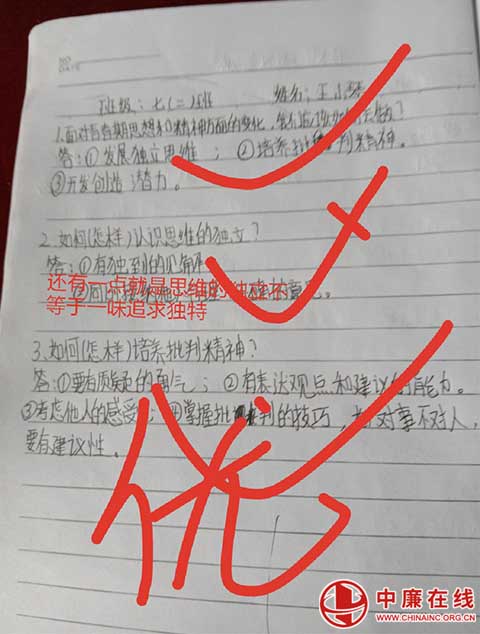 班级：七(二)班 姓名：王小琴
1.面对青春期思想和精神方面的变化，我们应该如何去做？
答：①发展独立思维；②培养批判精神。
③开发创造潜力。
2.如何(怎样)认识思维的独立？
答：①有独到的见解
还有一点就是思维的独立不
等于一味追求独特
3.如何(怎样)培养批判精神？
答：①要有质疑的勇气；②有表达观点和建议的能力。
③考虑他人的感受；④掌握批判的技巧，对事不对人，
要有建议性。
优
中廉在线
WWW.CHINAINC.ORG.CN